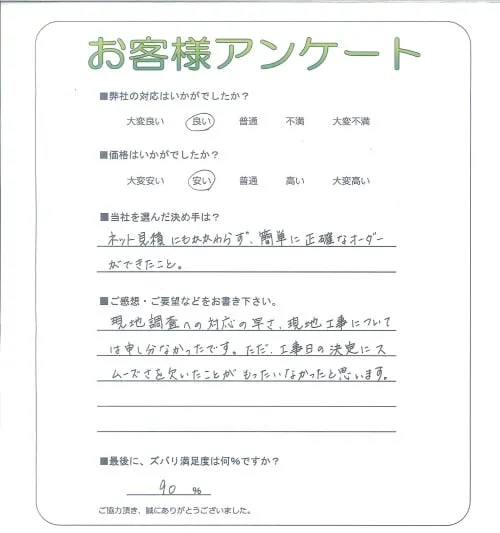 お客様アンケート
■弊社の対応はいかがでしたか？
大変良い 良い 普通 不満 大変不満
■価格はいかがでしたか？
大変安い 安い 普通 高い 大変高い
■当社を選んだ決め手は？
ネット見積にもかかわらず、簡単に正確なオーダー
ができたこと。
■ご感想・ご要望などをお書き下さい。
現地調査への対応の早さ、現地工事について
は申し分なかったです。ただ、工事日の決定にス
ムーズさを欠いたことがもったいなかったと思います。
■最後に、ズバリ満足度は何％ですか？
90 ％
ご協力頂き、誠にありがとうございました。